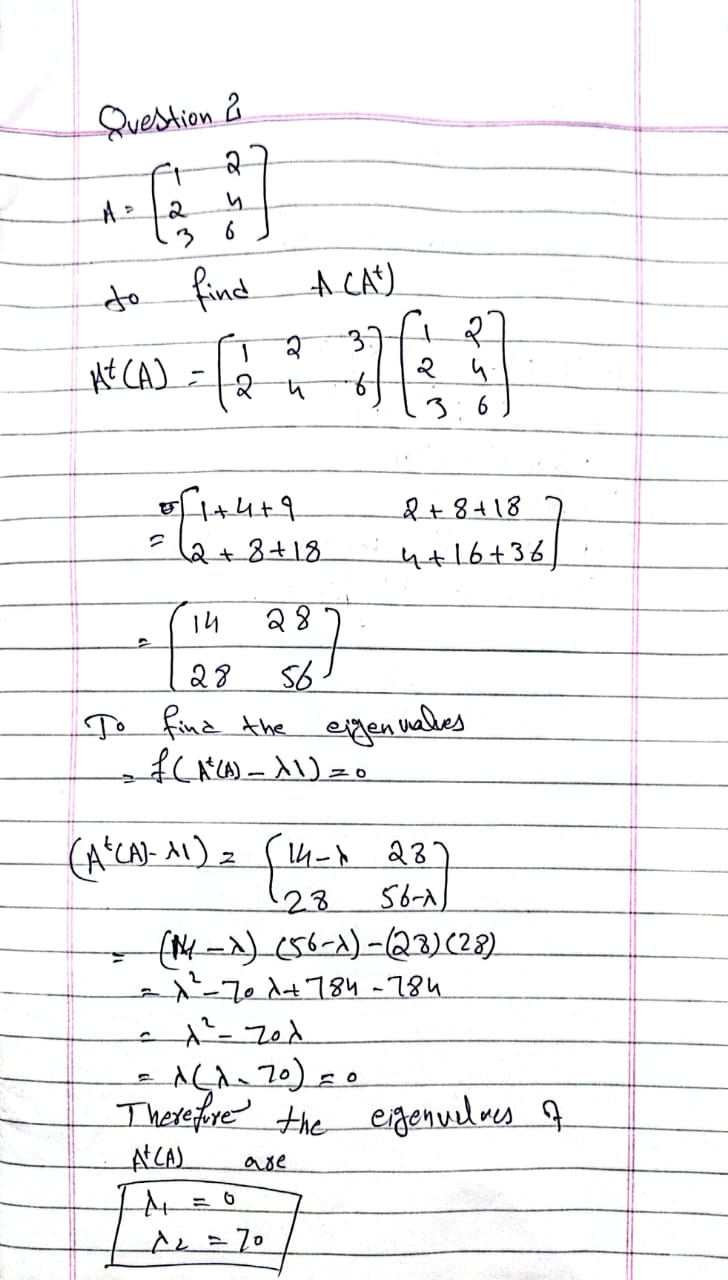 Question 2
A = [1 2
2 4
3 6]
to find A(Aᵗ)
Aᵗ(A) = [1 2 3
2 4 6] [1 2
2 4
3 6]
= [1+4+9 2+8+18
2+8+18 4+16+36]
= [14 28
28 56]
To find the eigenvalues
= f(Aᵗ(A) – λI) = 0
(Aᵗ(A) – λI) = [14–λ 28
28 56–λ]
= (14 – λ) (56–λ) – (28)(28)
= λ² – 70λ + 784 – 784
= λ² – 70λ
= λ(λ – 70) = 0
Therefore the eigenvalues of
Aᵗ(A) are
λ₁ = 0
λ₂ = 70